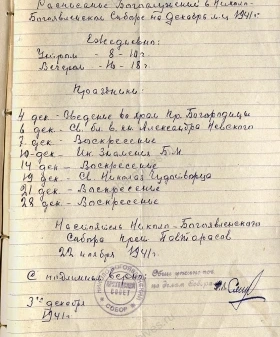 Расписание Богослужений в Николо-
Богоявленском Соборе на Декабрь м-ц 1941 г.
Ежедневно:
Утром - 8-10 ч
Вечером - 16-18 ч
Праздники:
4 дек - Введение во Храм Пр. Богородицы
6 дек. - Св. бл. в. кн. Александра Невского
7 дек - Воскресение
10 дек - Ик. Знамения Б.М.
14 дек - Воскресение
19 дек - Св. Николая Чудотворца
21 дек - Воскресение
28 дек - Воскресение
Настоятель Николо-Богоявленского
Собора
22 ноября 1941 г.
С подлинным верно
3го декабря
1941 г.
СОБОР